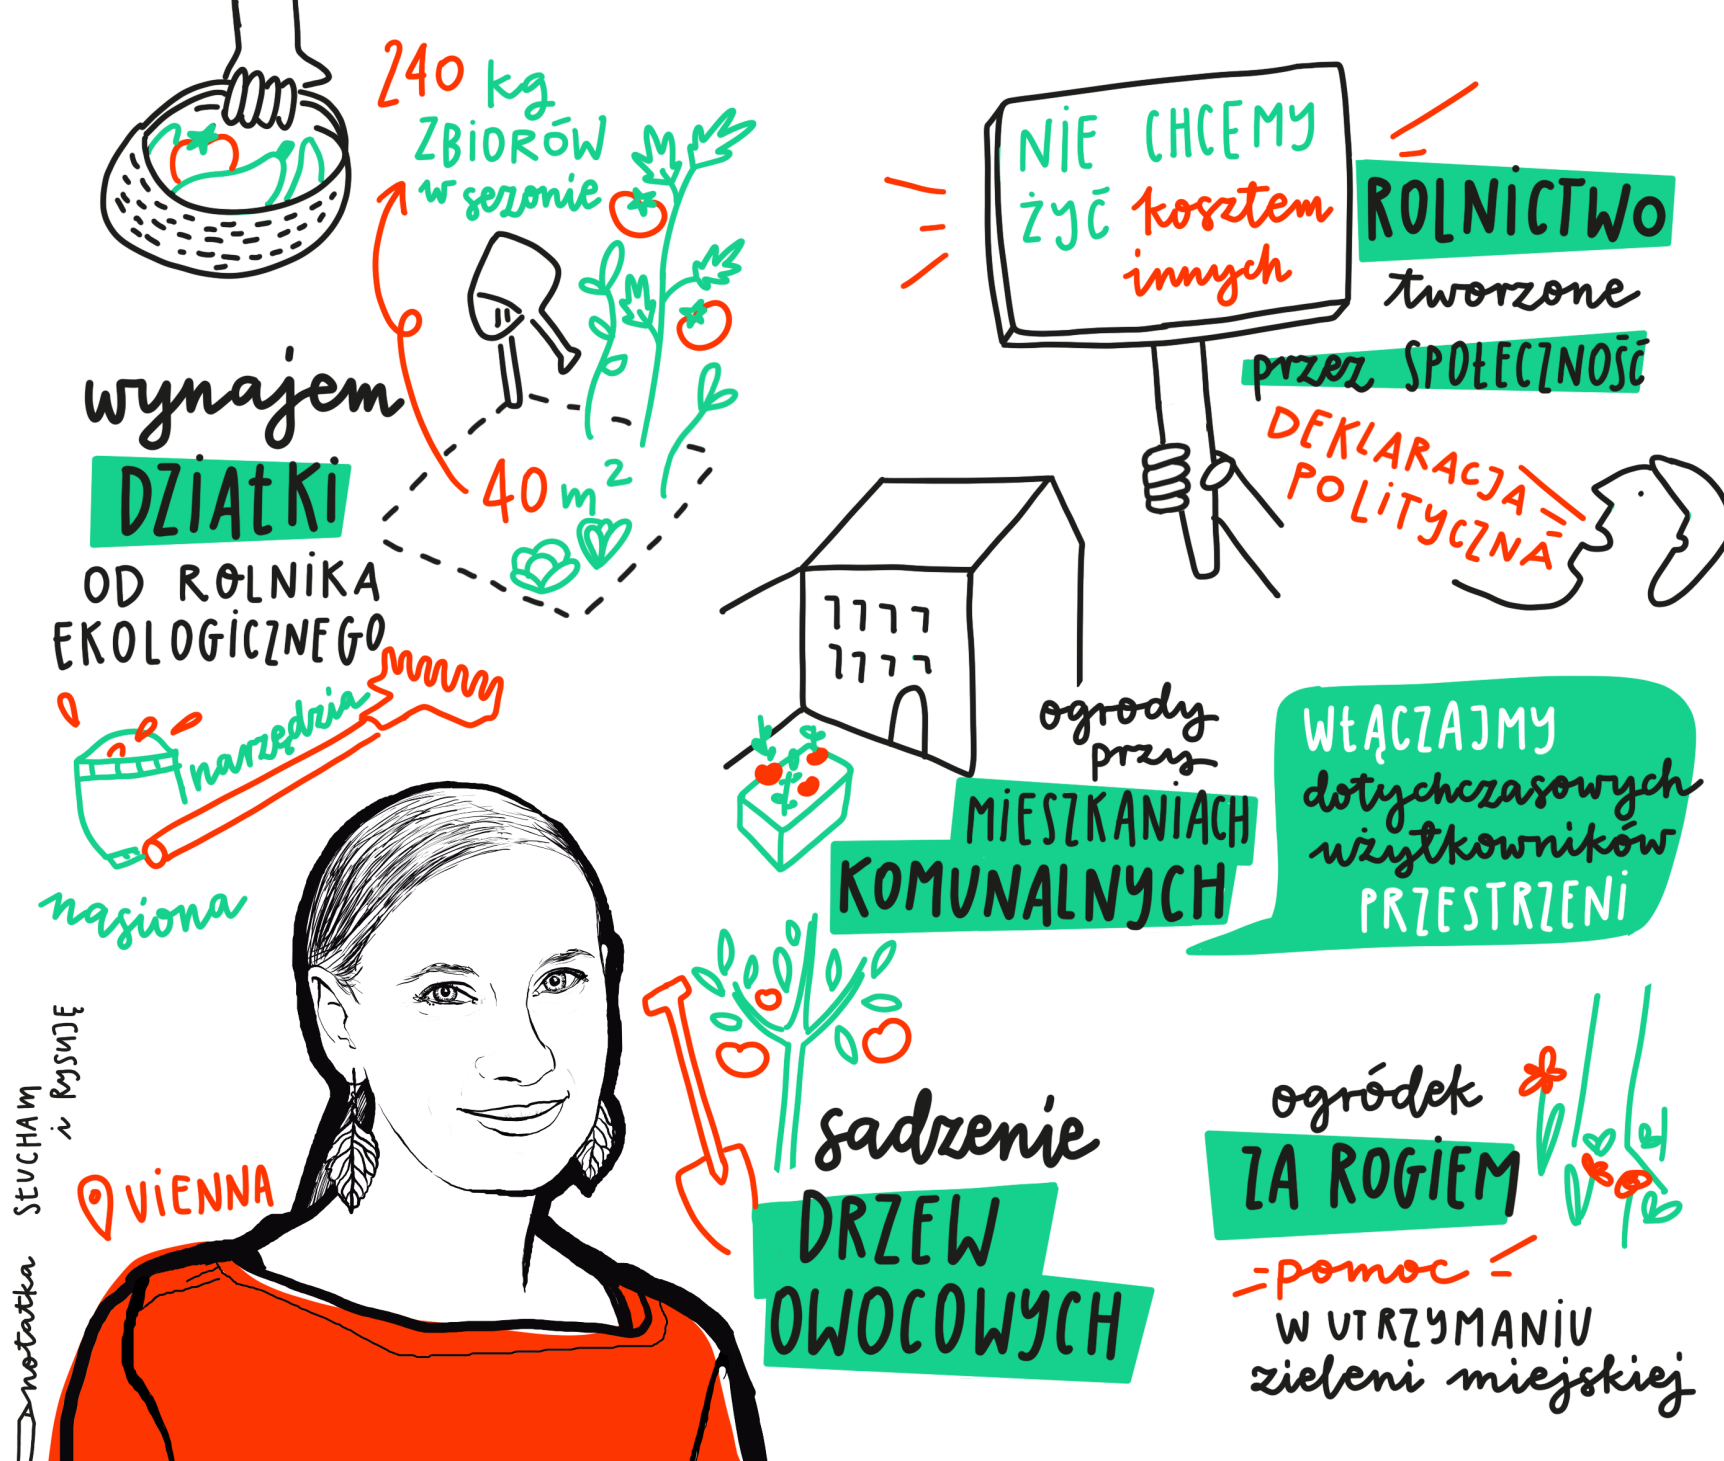 240 kg
ZBIORÓW
w sezonie
wynajem
DZIAŁKI
OD ROLNIKA
EKOLOGICZNEGO
40 m²
narzędzia
nasiona
NIE CHCEMY
ŻYĆ kosztem
innych
ROLNICTWO
tworzone
przez SPOŁECZNOŚĆ
DEKLARACJA
POLITYCZNA
ogrody
przy
MIESZKANIACH
KOMUNALNYCH
WŁĄCZAJMY
dotychczasowych
użytkowników
PRZESTRZENI
VIENNA
sadzenie
DRZEW
OWOCOWYCH
ogródek
ZA ROGIEM
pomoc
W UTRZYMANIU
zieleni miejskiej
notatka SŁUCHAM
i RYSUJĘ